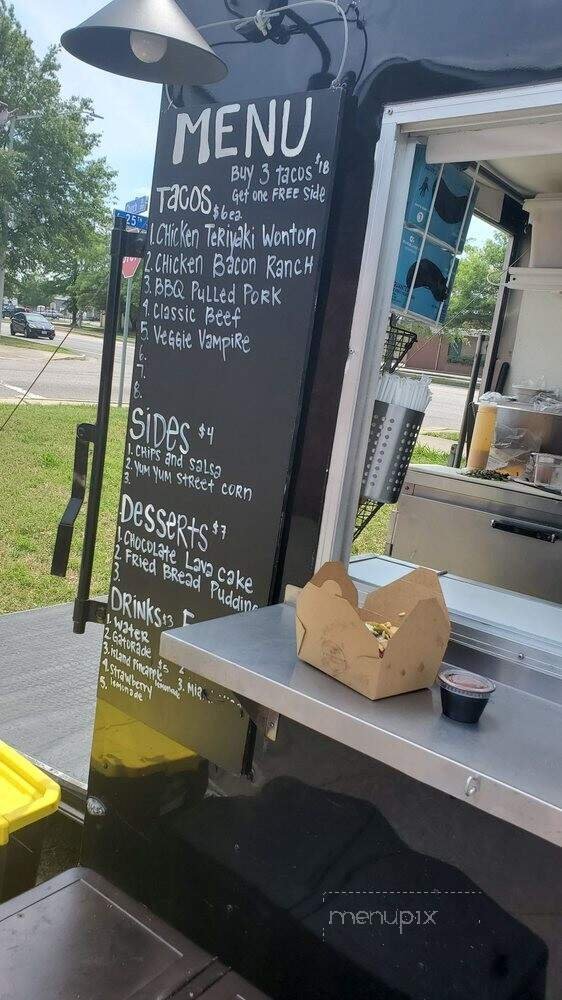 MENU
BUY 3 TACOS $18
Get one FREE side
TACOS $6 ea
1. Chicken Teriyaki Wonton
2. Chicken Bacon Ranch
3. BBQ Pulled Pork
4. Classic Beef
5. Veggie Vampire
6.
7.
8.
SIDES $4
1. Chips and Salsa
2. Yum Yum Street Corn
3.
DESSERTS $7
1. Chocolate Lava Cake
2. Fried Bread Pudding
3.
DRINKS $3
1. Water
2. Gatorade
3. Island Pineapple $5
lemonade
4. Strawberry
lemonade
5.
3. Mia
25TH
menupix